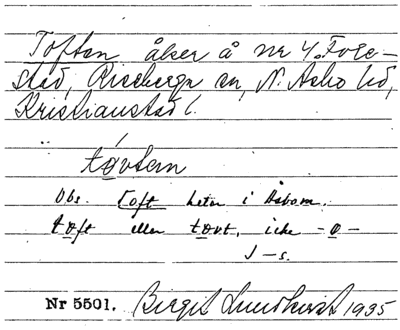 Toften åker å nr 4. Fore-
stad, Riseberga sn, N. Åsbo hd,
Kristianstad l.
tǫvten
Obs. Toft heter i Åsbom.
tǫft eller tǫvt, icke -ø-
J-s.
Nr 5501. Birgit Lundkvist 1935